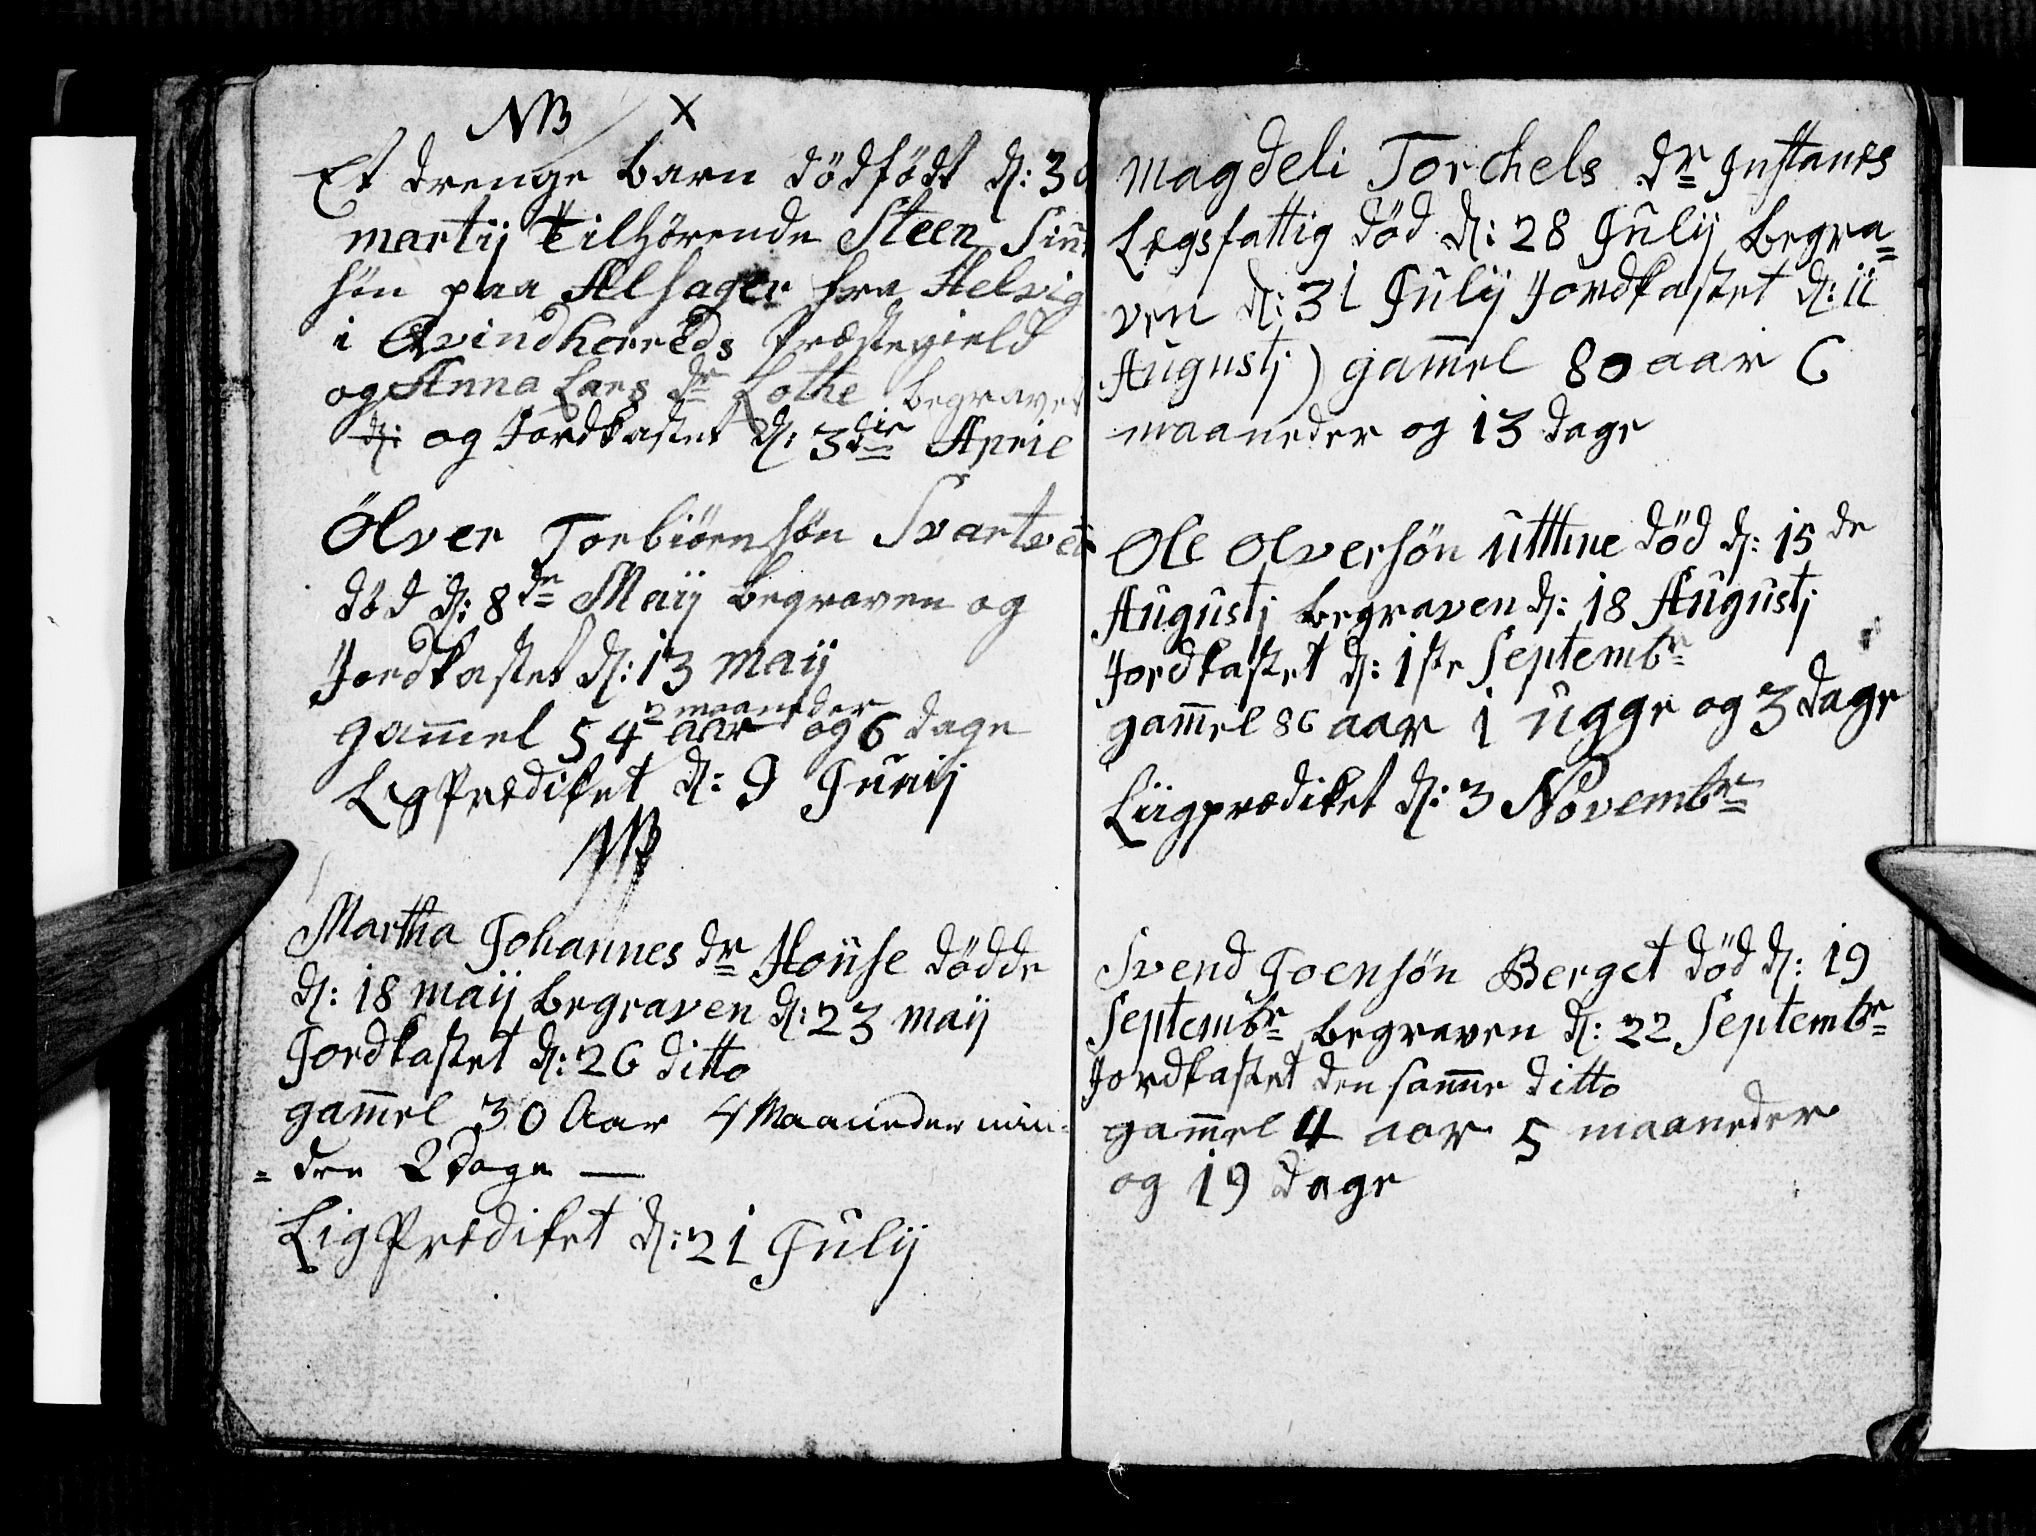 NB X
Et drenge barn dödfödt d: 30
martij tilhörende Steen
sön paa Alsager fra Helvig
i Qvindherreds Præstegield
og Anna Lars dr Lothe begraven
d: og Jordkastet d: 3die April
Ölver Torbiörnsön Svartved
död d: 8de Maij begraven og
Jordkastet d: 13 maij
2 maaneder
gammel 54 aar og 6 dage
LigPrediket d: 9 Junij
NB
Martha Johannes dr Housе dödde
d: 18 maij begraven d: 23 maij
Jordkastet d: 26 ditto
gammel 30 Aar 4 Maaneder min-
= dre 2 dage —
LigPrediket d: 21 Julij
Magdeli Torchels dr Instanes
Legsfattig död d: 28 Julij begra=
ven d: 31 Julij Jordkastet d: 11
Augustj) gammel 80 aar 6
maaneder og 13 dage
Ole Olversön Uttne död d: 15de
Augustj begraven d: 18 Augustj
Jordkastet d: 1ste Septembr
gammel 86 aar 1 ugge og 3 dage
Liigprædiket d: 3 Novembr
Svend Joensön Berget död d: 19
Septembr begraven d: 22 Septembr
Jordkastet den samme ditto
gammel 4 aar 5 maaneder
og 19 dage